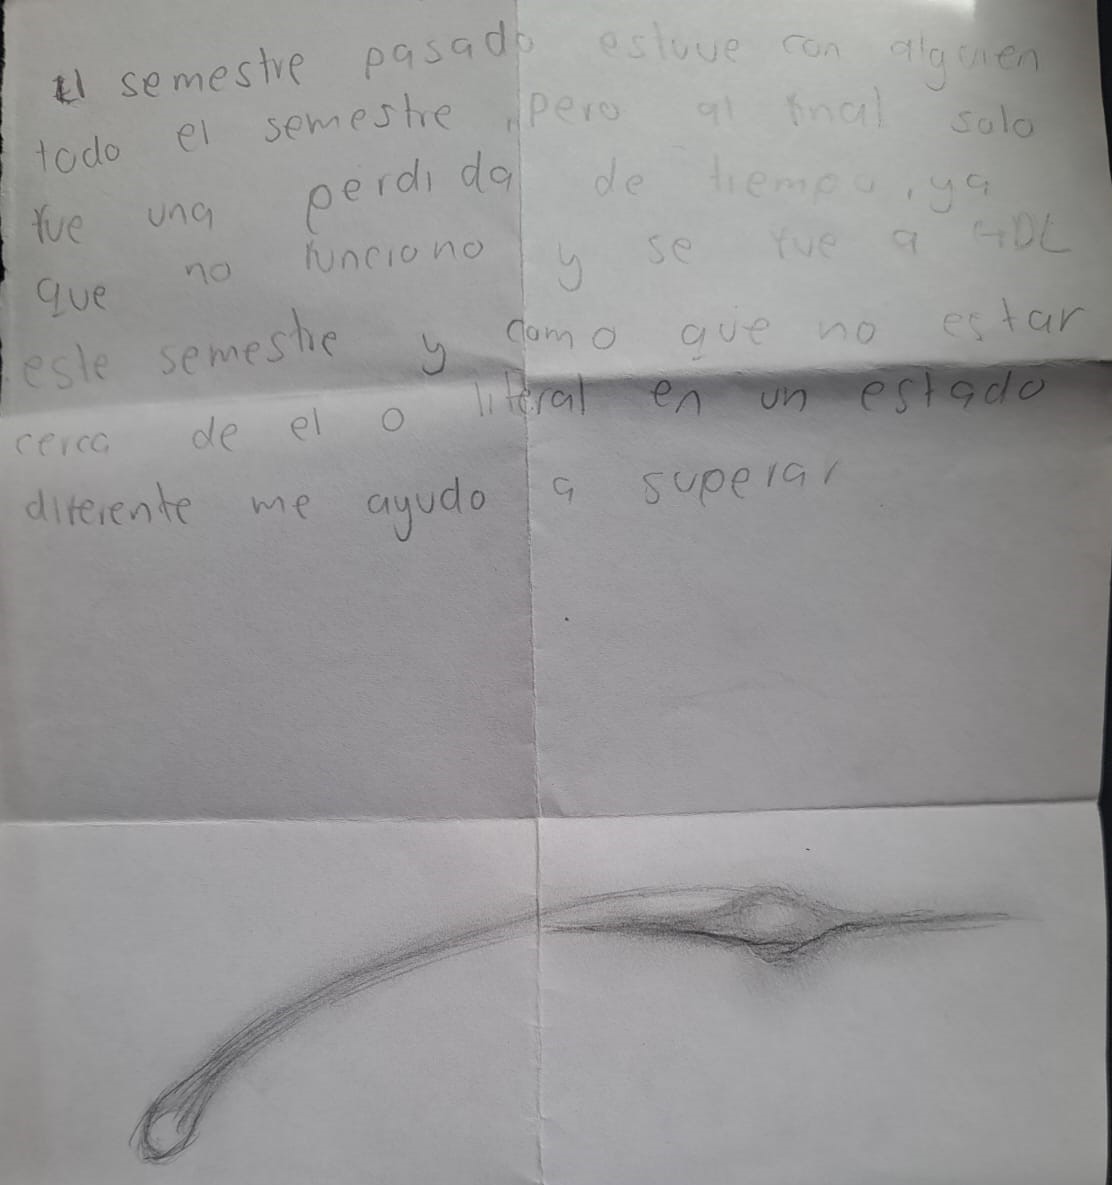 El semestre pasado estuve con alguien
todo el semestre, pero al final solo
fue una perdida de tiempo, ya
que no funciono y se fue a GDL
este semestre y como que no estar
cerca de el o literal en un estado
diferente me ayudo a superar